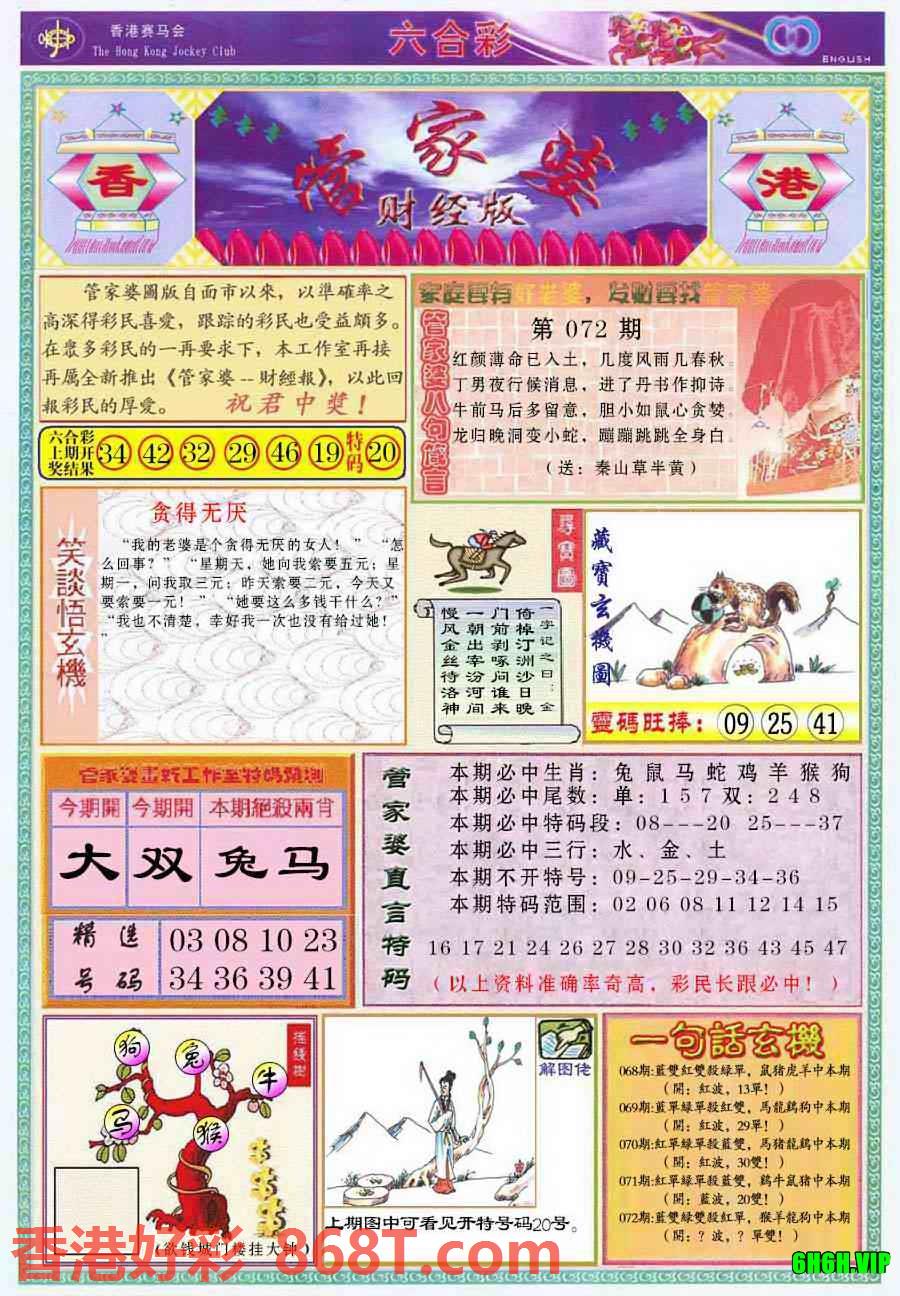 香港赛马会
The Hong Kong Jockey Club
六合彩
ENGLISH
香
管家婆
财经版
港
管家婆圖版自面市以來，以準確率之
高深得彩民喜愛，跟踪的彩民也受益頗多。
在眾多彩民的一再要求下，本工作室再接
再厲全新推出《管家婆--財經報》，以此回
報彩民的厚愛。 祝君中獎！
六合彩
上期开
奖结果
34 42 32 29 46 19 特码 20
家庭要有好老婆，发财要找管家婆
管家婆八句箴言
第 072 期
红颜薄命已入土，几度风雨几春秋。
丁男夜行候消息，进了丹书作抑诗。
牛前马后多留意，胆小如鼠心贪婪。
龙归晚洞变小蛇，蹦蹦跳跳全身白。
（送：秦山草半黄）
笑談悟玄機
贪得无厌
“我的老婆是个贪得无厌的女人！”“怎
么回事？”“星期天，她向我索要五元；星
期一，问我取三元；昨天索要二元，今天又
要索要一元！”“她要这么多钱干什么？”
“我也不清楚，幸好我一次也没有给过她！
”
尋寶圖
一字记之曰：金
倚棹汀洲沙日晚
门前剥啄问谁来
一朝出宰汾河间
慢风金丝待洛神
藏寶玄機圖
靈碼旺捧：09 25 41
管家婆最新工作室特码预测
今期開 今期開 本期絕殺兩肖
大 双 兔马
精选
号码
03 08 10 23
34 36 39 41
管家婆直言特码
本期必中生肖：兔 鼠 马 蛇 鸡 羊 猴 狗
本期必中尾数：单：1 5 7 双：2 4 8
本期必中特码段：08---20 25---37
本期必中三行：水、金、土
本期不开特号：09-25-29-34-36
本期特码范围：02 06 08 11 12 14 15
16 17 21 24 26 27 28 30 32 36 43 45 47
（以上资料准确率奇高，彩民长跟必中！）
摇錢樹
狗
兔
牛
马
猴
（欲钱城门楼挂大钟）
解图佬
上期图中可看见开特号码20号。
一句話玄機
068期:藍雙紅雙殺綠單，鼠猪虎羊中本期
（開：紅波，13單！）
069期:藍單綠單殺紅雙，馬龍鷄狗中本期
（開：紅波，29單！）
070期:紅單綠單殺藍雙，馬猪龍鷄中本期
（開：紅波，30雙！）
071期:紅雙綠單殺藍單，鷄牛鼠猪中本期
（開：藍波，20雙！）
072期:藍雙綠雙殺紅單，猴羊龍狗中本期
（開：？波，？單雙！）
香港好彩 868T.com
6H6H.VIP